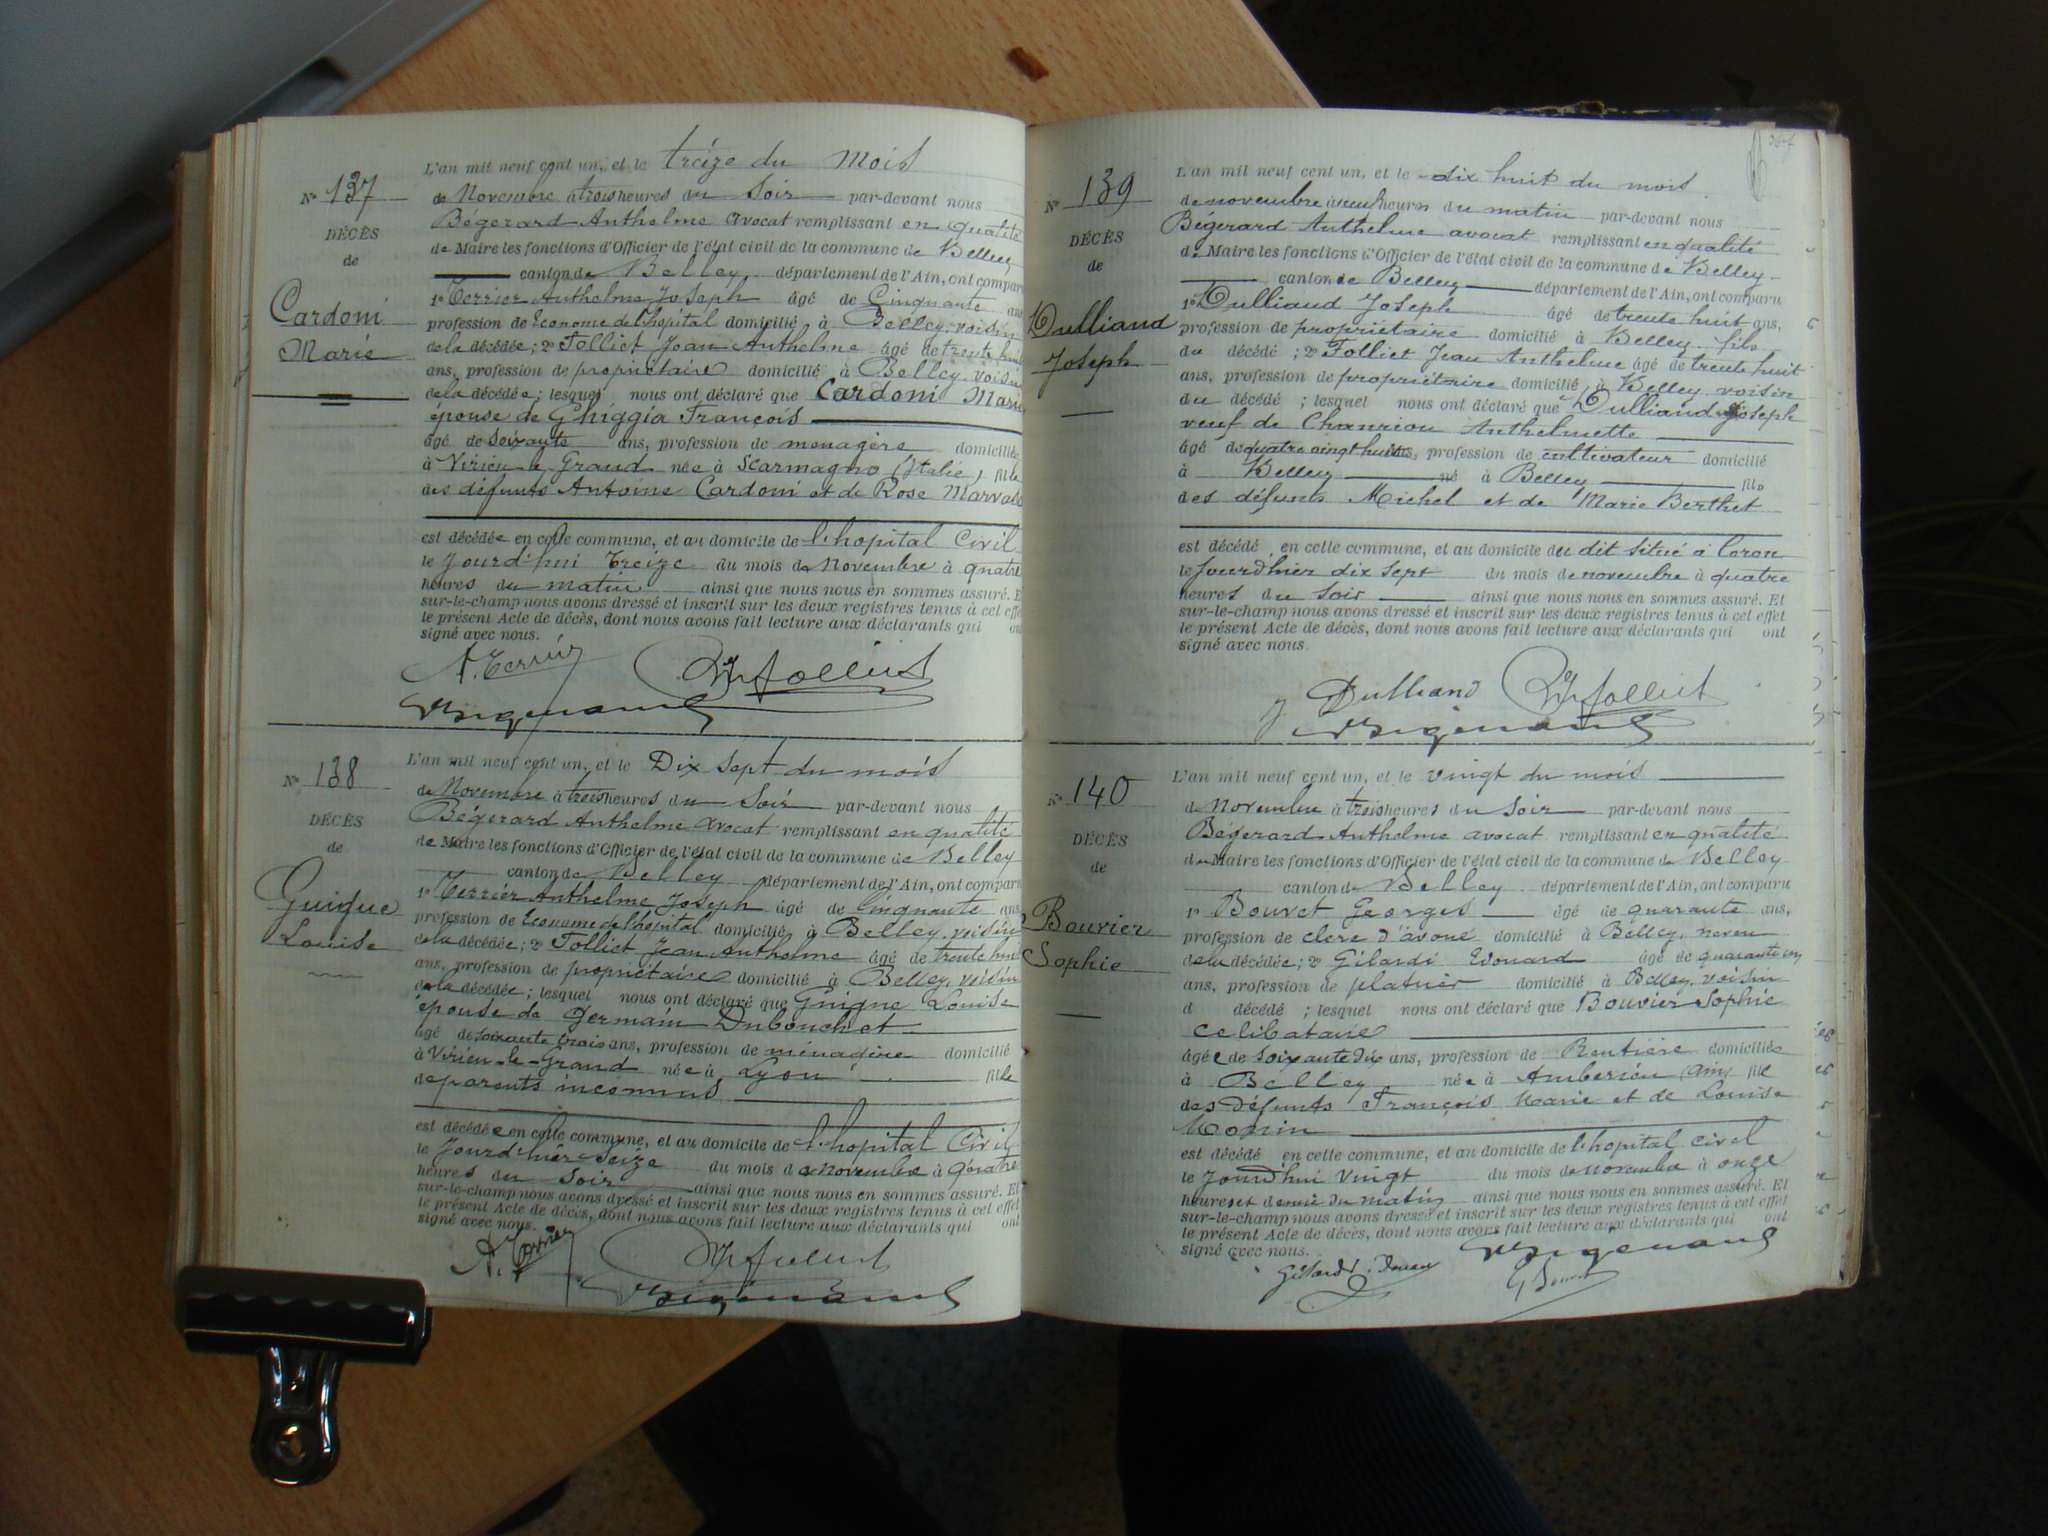 L'an mil neuf cent un, et le treize du mois
N° 137
de Novembre à trois heures du Soir par-devant nous
Bégerard Anthelme avocat remplissant en qualité
DÉCÈS
de Maire les fonctions d'Officier de l'état civil de la commune de Belley
de
canton de Belley département de l'Ain, ont comparu
1° Terrier Anthelme Joseph âgé de Cinquante ans
Cardoni
profession de Econome de l'hôpital domicilié à Belley, voisin
Marie
de la décédée; 2° Folliet Jean Anthelme âgé de trente huit
ans, profession de propriétaire domicilié à Belley, voisin
de la décédée; lesquel nous ont déclaré que Cardoni Marie
épouse de Ghiggia François
âgé de soixante ans, profession de menagère domiciliée
à Virieu le Grand née à Scarmagno (Italie) fille
des défunts Antoine Cardoni et de Rose
est décédée en cette commune, et au domicile de l'hopital Civil
le Jourd'hui Treize du mois de Novembre à quatre
heures du matin ainsi que nous nous en sommes assuré. E
sur-le-champ nous avons dressé et inscrit sur les deux registres tenus à cet effe
le présent Acte de décès, dont nous avons fait lecture aux déclarants qui on
signé avec nous.
A. Terrier
Folliet
L'an mil neuf cent un, et le Dix Sept du mois
N° 138
de Novembre à trois heures du Soir par-devant nous
Bégerard Anthelme avocat remplissant en qualité
DÉCÈS
de Maire les fonctions d'Officier de l'état civil de la commune de Belley
de
canton de Belley département de l'Ain, ont comparu
1° Terrier Anthelme Joseph âgé de Cinquante ans
Guigue
profession de Econome de l'hopital domicilié à Belley, voisin
Louise
de la décédée; 2° Folliet Jean Anthelme âgé de trente huit
ans, profession de propriétaire domicilié à Belley, voisin
de la décédée; lesquel nous ont déclaré que Guigue Louise
épouse de Germain Dubouchet
âgé de soixante trois ans, profession de ménagère domicilié
à Virieu-le-Grand née à Lyon fille
de parents inconnus
est décédée en cette commune, et au domicile de l'hopital Civil
le Jourd'hier Seize du mois de novembre à quatre
heures du Soir ainsi que nous nous en sommes assuré. Et
sur-le-champ nous avons dressé et inscrit sur les deux registres tenus à cet effet
le présent Acte de décès, dont nous avons fait lecture aux déclarants qui ont
signé avec nous.
A. Terrier
Folliet
L'an mil neuf cent un, et le dix huit du mois
N° 139
de novembre à neuf heures du matin par-devant nous
Bégerard Anthelme avocat remplissant en qualité
DÉCÈS
de Maire les fonctions d'Officier de l'état civil de la commune de Belley
de
canton de Belley département de l'Ain, ont comparu
1° Dulliand Joseph âgé de trente huit ans,
Dulliand
profession de propriétaire domicilié à Belley, fils
Joseph
du décédé; 2° Folliet Jean Anthelme âgé de trente huit
ans, profession de propriétaire domicilié à Belley, voisin
du décédé; lesquel nous ont déclaré que Dulliand Joseph
veuf de Anthelmette
âgé de quatre vingt huit ans, profession de cultivateur domicilié
à Belley né à Belley fils
des défunts Michel et de Marie Berthet
est décédé en cette commune, et au domicile du dit situé à Coron
le Jourdhier dix Sept du mois de novembre à quatre
heures du Soir ainsi que nous nous en sommes assuré. Et
sur-le-champ nous avons dressé et inscrit sur les deux registres tenus à cet effet
le présent Acte de décès, dont nous avons fait lecture aux déclarants qui ont
signé avec nous.
Dulliand Folliet
L'an mil neuf cent un, et le vingt du mois
N° 140
de Novembre à trois heures du Soir par-devant nous
Bégerard Anthelme avocat remplissant en qualité
DÉCÈS
de Maire les fonctions d'Officier de l'état civil de la commune de Belley
de
canton de Belley département de l'Ain, ont comparu
1° Bouvet Georges âgé de quarante ans,
Bouvier
profession de clerc d'avoué domicilié à Belley, neveu
Sophie
de la décédée; 2° Gilardi Edouard âgé de quarante cinq
ans, profession de platrier domicilié à Belley, voisin
d décédé; lesquel nous ont déclaré que Bouvier Sophie
Celibataire
âgée de soixante dix ans, profession de Rentière domiciliée
à Belley née à Amberieu (Ain) fille
des Défunts François Marie et de Louise
est décédé en cette commune, et au domicile de l'hopital civil
le Jourd'hui Vingt du mois de novembre à onze
heures et demie du matin ainsi que nous nous en sommes assuré. Et
sur-le-champ nous avons dressé et inscrit sur les deux registres tenus à cet effet
le présent Acte de décès, dont nous avons fait lecture aux déclarants qui ont
signé avec nous.